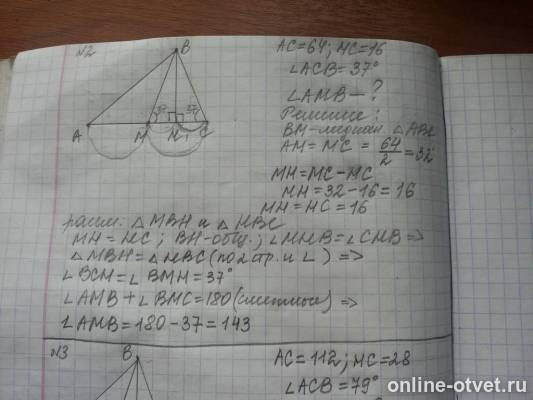 N2
B
37
37
A
M
H
C
AC=64; HC=16
∠ACB=37°
∠AMB-?
Решение:
BM-медиан. △ABC
AM=MC=64/2=32
MH=MC-HC
MH=32-16=16
MH=HC=16
расм. △MBH и △HBC
MH=HC; BH-общ.; ∠MHB=∠CHB=>
△MBH=△HBC(по 2 стр. и ∠)=>
∠BCH=∠BMH=37°
∠AMB+∠BMC=180(смежные)=>
∠AMB=180-37=143
N3
B
AC=112; HC=28
∠ACB=79°
online-otvet.ru